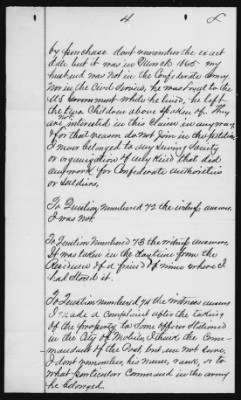 4
8
by purchase dont remember the exact
date but it was in March 1865 my
husband was not in the Confederate Army
Nor in the Civil Service, he was loyal to the
US Government while he lived, he left
the two Children above spoken of. They
are not interested in this Claim in any way
& for that reason do not join in the petition
I never belonged to any sewing Society
or organization of any kind that did
any work for Confederate authorities
or soldiers.
To Question Numbered 72 the witness answers
I was not.
To Question Numbered 73 the witness answers,
It was taken in the daytime from the
Residence of a friend of mine where I
had stored it.
To Question numbered 74 the witness answers
I made a Complaint after the taking
of the property to some officer stationed
in the City of Mobile, I think the Com-
mandant of the Post, but am not sure,
I dont remember his name, rank, or to
what particular Command in the army
he belonged.